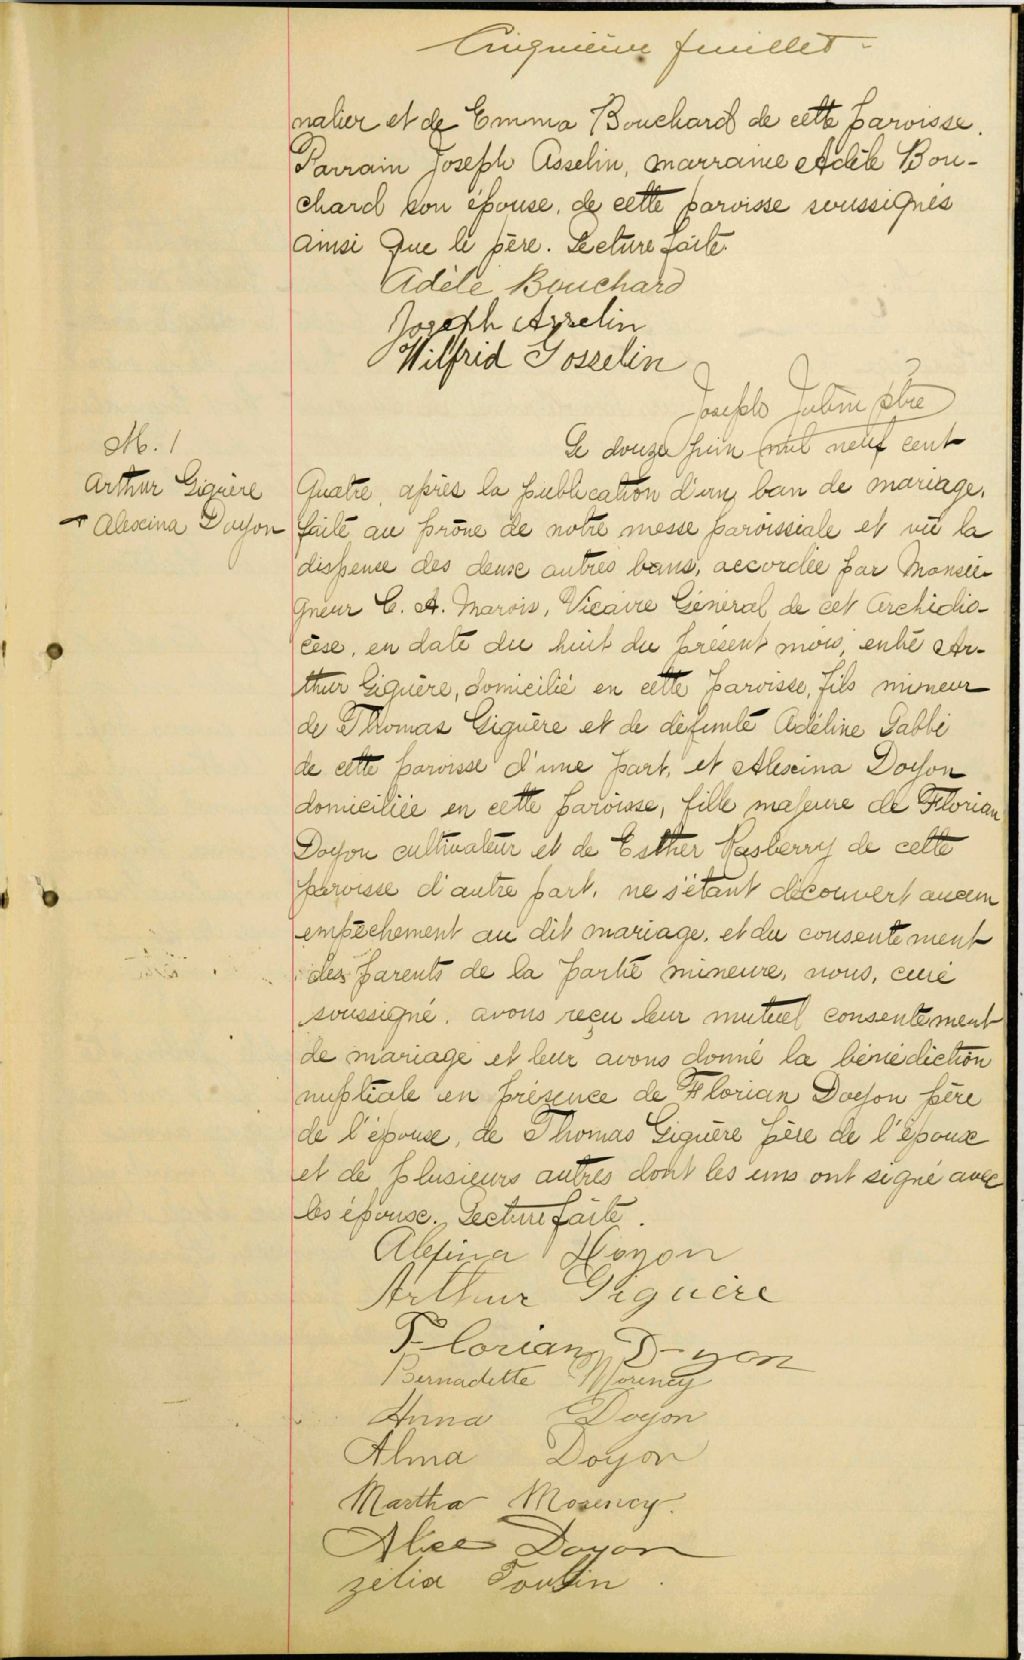 Cinquième feuillet -
nalier et de Emma Bouchard de cette paroisse.
Parrain Joseph Asselin, marraine Adèle Bou-
chard son épouse, de cette paroisse soussignés
ainsi que le père. Lecture faite.
Adèle Bouchard
Joseph Asselin
Wilfrid Gosselin
Joseph ptre
M. 1
Arthur Giguère
Alexina Doyon
Le douze juin mil neuf cent
quatre, après la publication d'un ban de mariage,
faite au prône de notre messe paroissiale et vu la
dispense des deux autres bans, accordée par Monsei-
gneur C. A. Marois, Vicaire Général de cet Archidio-
cèse, en date du huit du présent mois, entre Ar-
thur Giguère, domicilié en cette paroisse, fils mineur
de Thomas Giguère et de défunte Adéline Labbé
de cette paroisse d'une part, et Alexina Doyon
domiciliée en cette paroisse, fille majeure de Florian
Doyon cultivateur et de Esther Rasberry de cette
paroisse d'autre part, ne s'étant découvert aucun
empêchement au dit mariage, et du consentement
des parents de la partie mineure, nous, curé
soussigné, avons reçu leur mutuel consentement
de mariage et leur avons donné la bénédiction
nuptiale en présence de Florian Doyon père
de l'épouse, de Thomas Giguère père de l'époux
et de plusieurs autres dont les uns ont signé avec
les époux. Lecture faite.
Alexina Doyon
Arthur Giguère
Florian Doyon
Bernadette Morency
Anna Doyon
Alma Doyon
Martha Morency.
Alice Doyon
Zélia